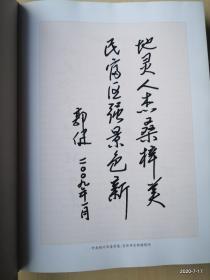 地灵人杰桑梓美
民富区强景色新
郭健 二〇〇九年一月
2020-7-17